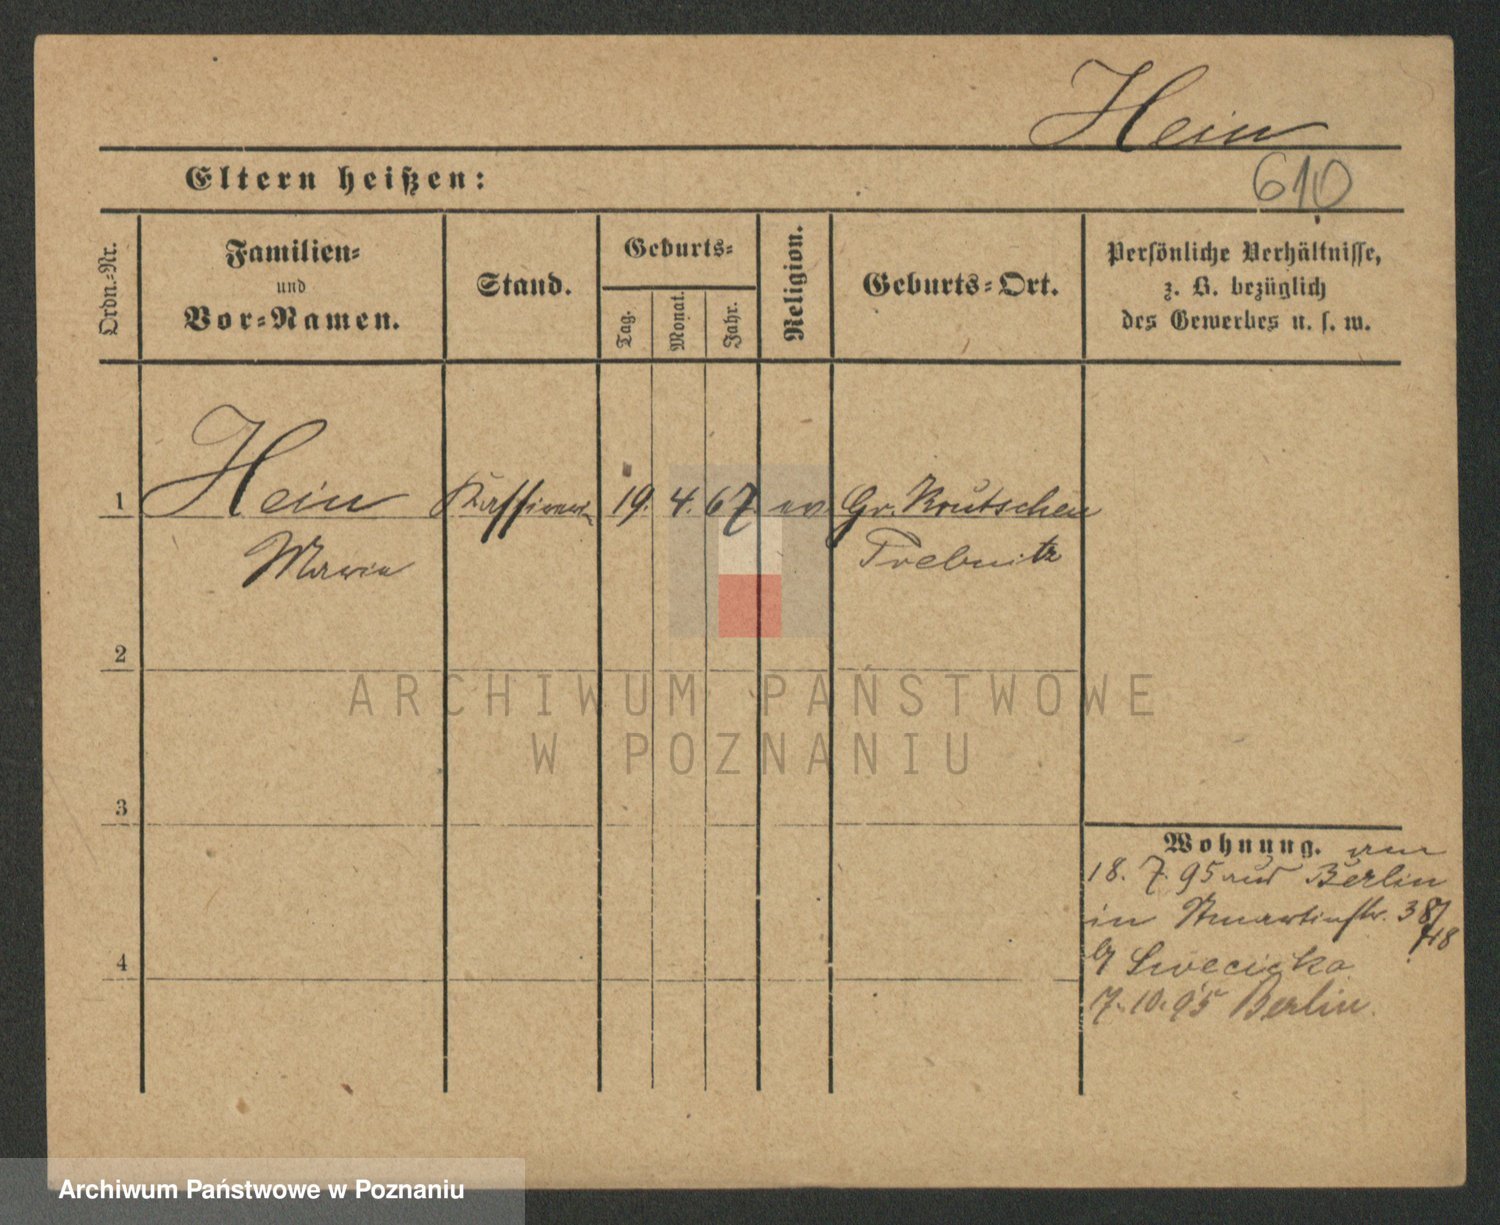 Hein
610
Eltern heißen:
Ordn.-Nr.
Familien-
und
Vor-Namen.
Stand.
Geburts-
Tag.
Monat.
Jahr.
Religion.
Geburts-Ort.
Persönliche Verhältnisse,
z. B. bezüglich
des Gewerbes u. s. w.
1 Hein Kassirerin 19. 4. 67 ev Gr. Krutschen
Marie Trebnitz
2
3
4
Wohnung. am
18. 7. 95 aus Berlin
in St martinstr. 38/
b/ Swecicka
7. 10. 95 Berlin.
ARCHIWUM PAŃSTWOWE
W POZNANIU
Archiwum Państwowe w Poznaniu